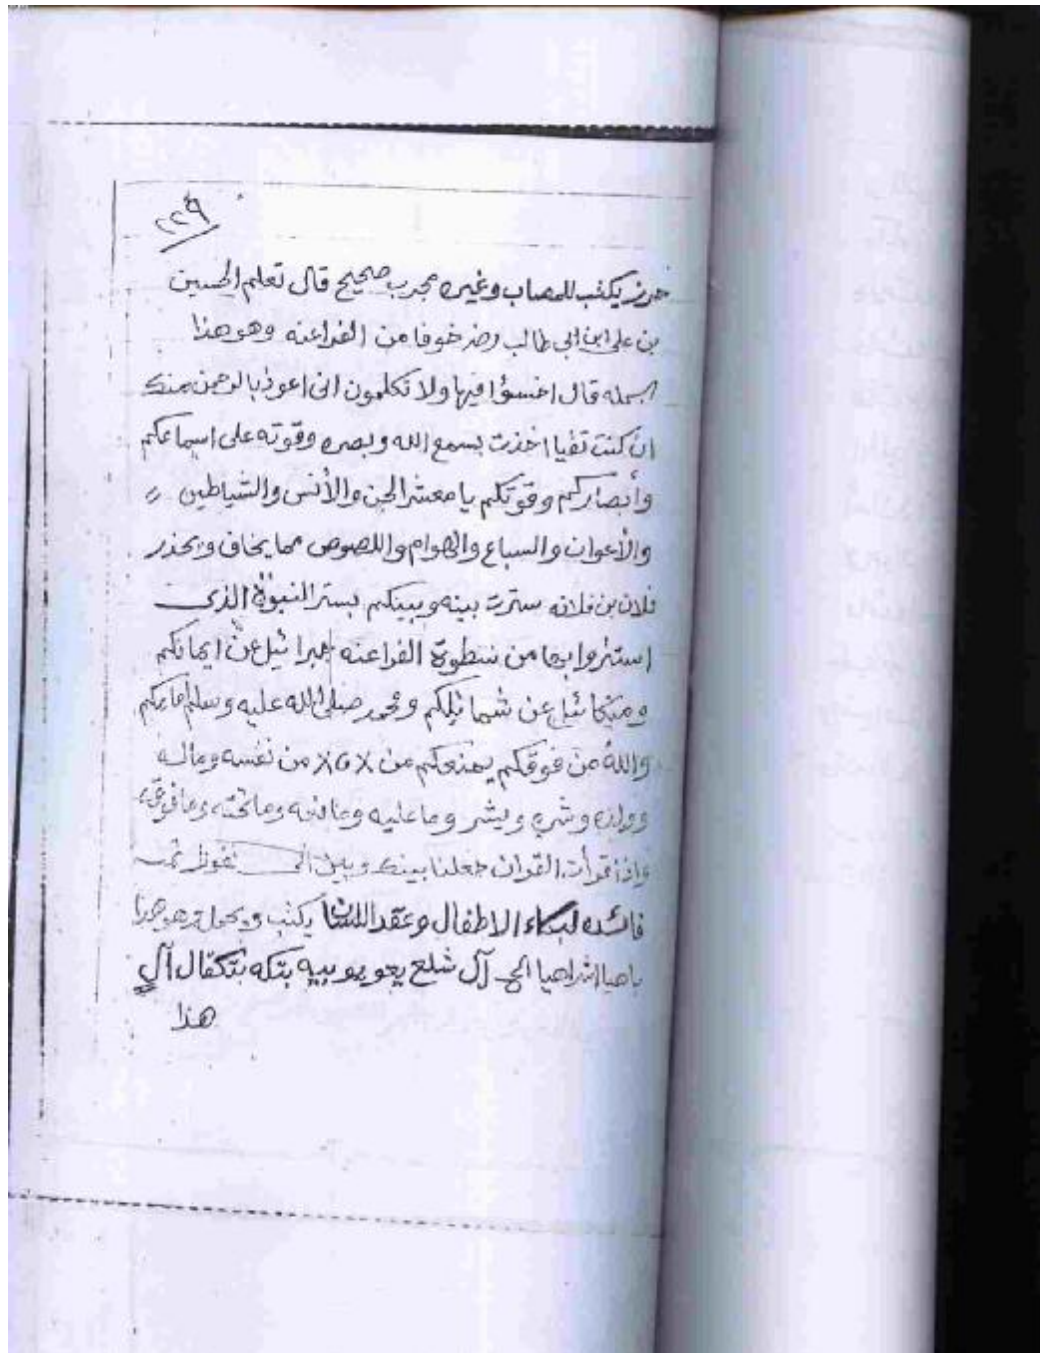 ٢٢٩
حرز يكتب للمصاب وغيره مجرب صحيح قال تعلم الحسين
بن على ابن ابى طالب رضى خوفا من الفراعنه وهو هذا
البسمله قال اخسؤا فيها ولا تكلمون انى اعوذ بالرحمن منك
ان كنت تقيا اخذت بسمع الله وبصره وقوته على اسماعكم
وأبصاركم وقوتكم يا معشر الجن والأنس والشياطين
والأعوان والسباع والهوام واللصوص مما يخاف ويحذر
فلان بن فلانه سترت بينه وبينكم بستر النبوة الذى
استتروا بها من سطوة الفراعنه جبرائيل عن ايمانكم
وميكائيل عن شمائلكم ومحمد صلى الله عليه وسلم امامكم
والله من فوقكم يمنعكم من من نفسه وماله
وولده وشره وبشر وما عليه وما معه وما تحته وما فوقه
واذا قرأت القران جعلنا بينك وبين الى نفورا تمت
فائده لبكاء الاطفال وعقد اللسان يكتب ويحمل وهو هذا
ياهيا اشراهيا الحى آل شلع يعو يوبيه بتكه بتكفال آل
هذا